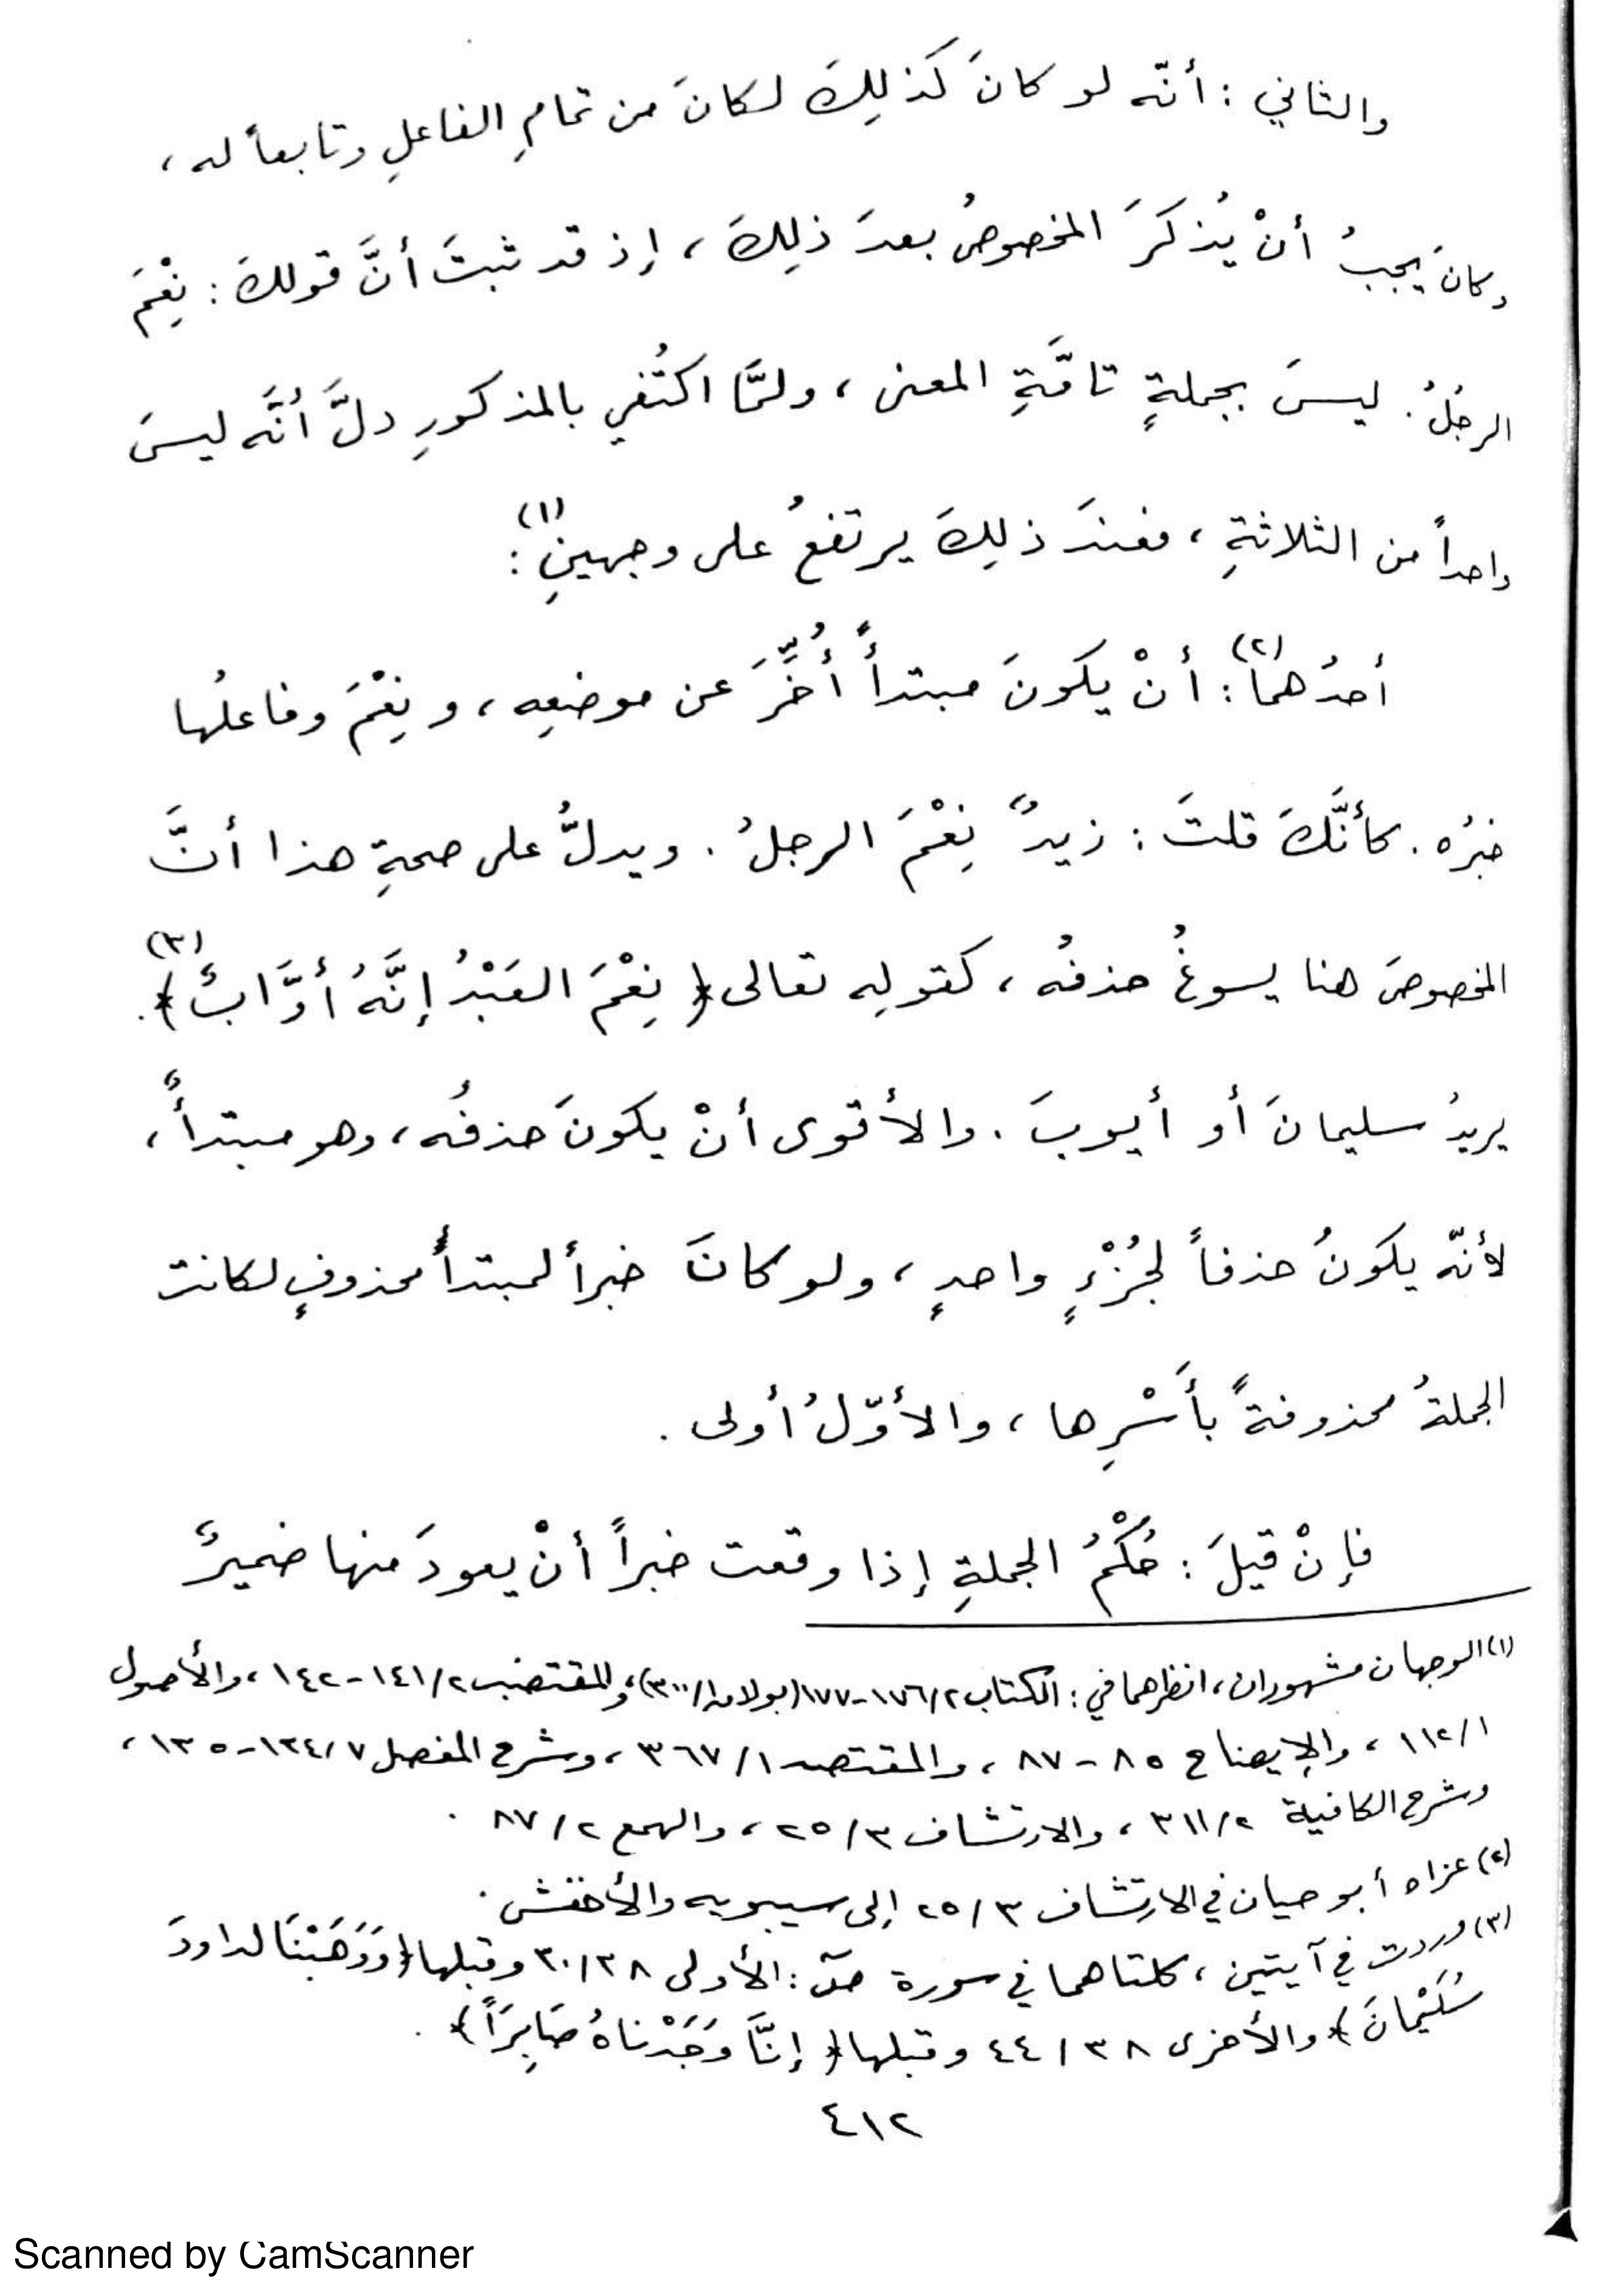 والثاني : أنّه لو كانَ كَذلِكَ لكانَ من تمامِ الفاعلِ وتابعاً له ،
وكانَ يجبُ أنْ يُذكَرَ المخصوصُ بعدَ ذلِكَ ، إذ قد ثبتَ أنَّ قولكَ : نِعْمَ
الرجلُ . ليسَ بجملةٍ تامَّةِ المعنى ، ولمَّا اكتُفي بالمذكورِ دلَّ أنَّه ليسَ
واحداً من الثلاثةِ ، فعندَ ذلِكَ يرتفعُ على وجهينِ (١) :
أحدُهما (٢) : أنْ يكونَ مبتدأً أُخِّرَ عن موضعِه ، ونِعْمَ وفاعلُها
خبرُه . كأنَّكَ قلتَ : زيدٌ نِعْمَ الرجلُ . ويدلُّ على صحةِ هذا أنَّ
المخصوصَ هنا يسوغُ حذفُه ، كقولِه تعالى ﴿ نِعْمَ العَبْدُ إنَّهُ أوَّابٌ ﴾ (٣) .
يريدُ سليمانَ أو أيوبَ . والأقوى أنْ يكونَ حذفُه ، وهو مبتدأٌ ،
لأنّه يكونُ حذفاً لجُزْءٍ واحدٍ ، ولو كانَ خبراً لمبتدأٍ محذوفٍ لكانت
الجملةُ محذوفةً بأَسْرِها ، والأوّلُ أولى .
فإنْ قيلَ : حُكْمُ الجملةِ إذا وقعت خبراً أنْ يعودَ منها ضميرٌ
(١) الوجهان مشهوران ، انظرهما في : الكتاب ٢/١٧٦-١٧٧ (بولاق ١/٣٠٠) ، والمقتضب ٢/١٤١-١٤٢ ، والأصول
١/١١٢ ، والإيضاح ٨٥-٨٧ ، والمقتصد ١/٣٦٧ ، وشرح المفصل ٧/١٣٤-١٣٥ ،
وشرح الكافية ٢/٣١١ ، والارتشاف ٣/٢٥ ، والهمع ٢/٨٧ .
(٢) عزاه أبو حيان في الارتشاف ٣/٢٥ إلى سيبويه والأخفش .
(٣) وردت في آيتين ، كلتاهما في سورة صۤ : الأولى ٣٨/٣٠ وقبلها ﴿ وَوَهَبْنَا لداودَ
سُلَيْمانَ ﴾ والأخرى ٣٨/٤٤ وقبلها ﴿ إنَّا وَجَدْناهُ صَابِرَاً ﴾ .
٤١٢
Scanned by CamScanner